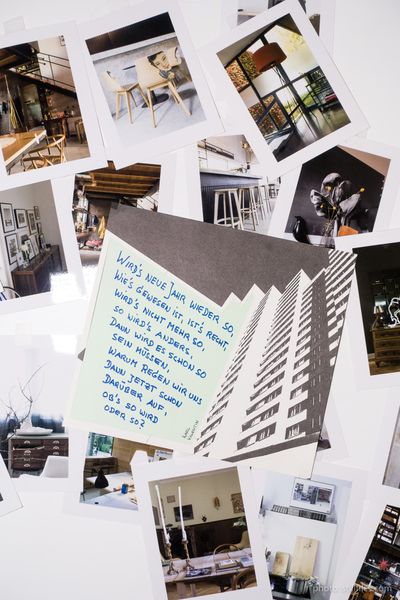 WIRD'S NEUE JAHR WIEDER SO,
WIE'S GEWESEN IST IST'S RECHT
WIRD'S NICHT MEHR SO,
SO WIRD'S ANDERS,
DANN WIRD ES SCHON SO
SEIN MÜSSEN,
WARUM REGEN WIR UNS
DANN JETZT SCHON
DARÜBER AUF,
OB'S SO WIRD
ODER SO?
KARL